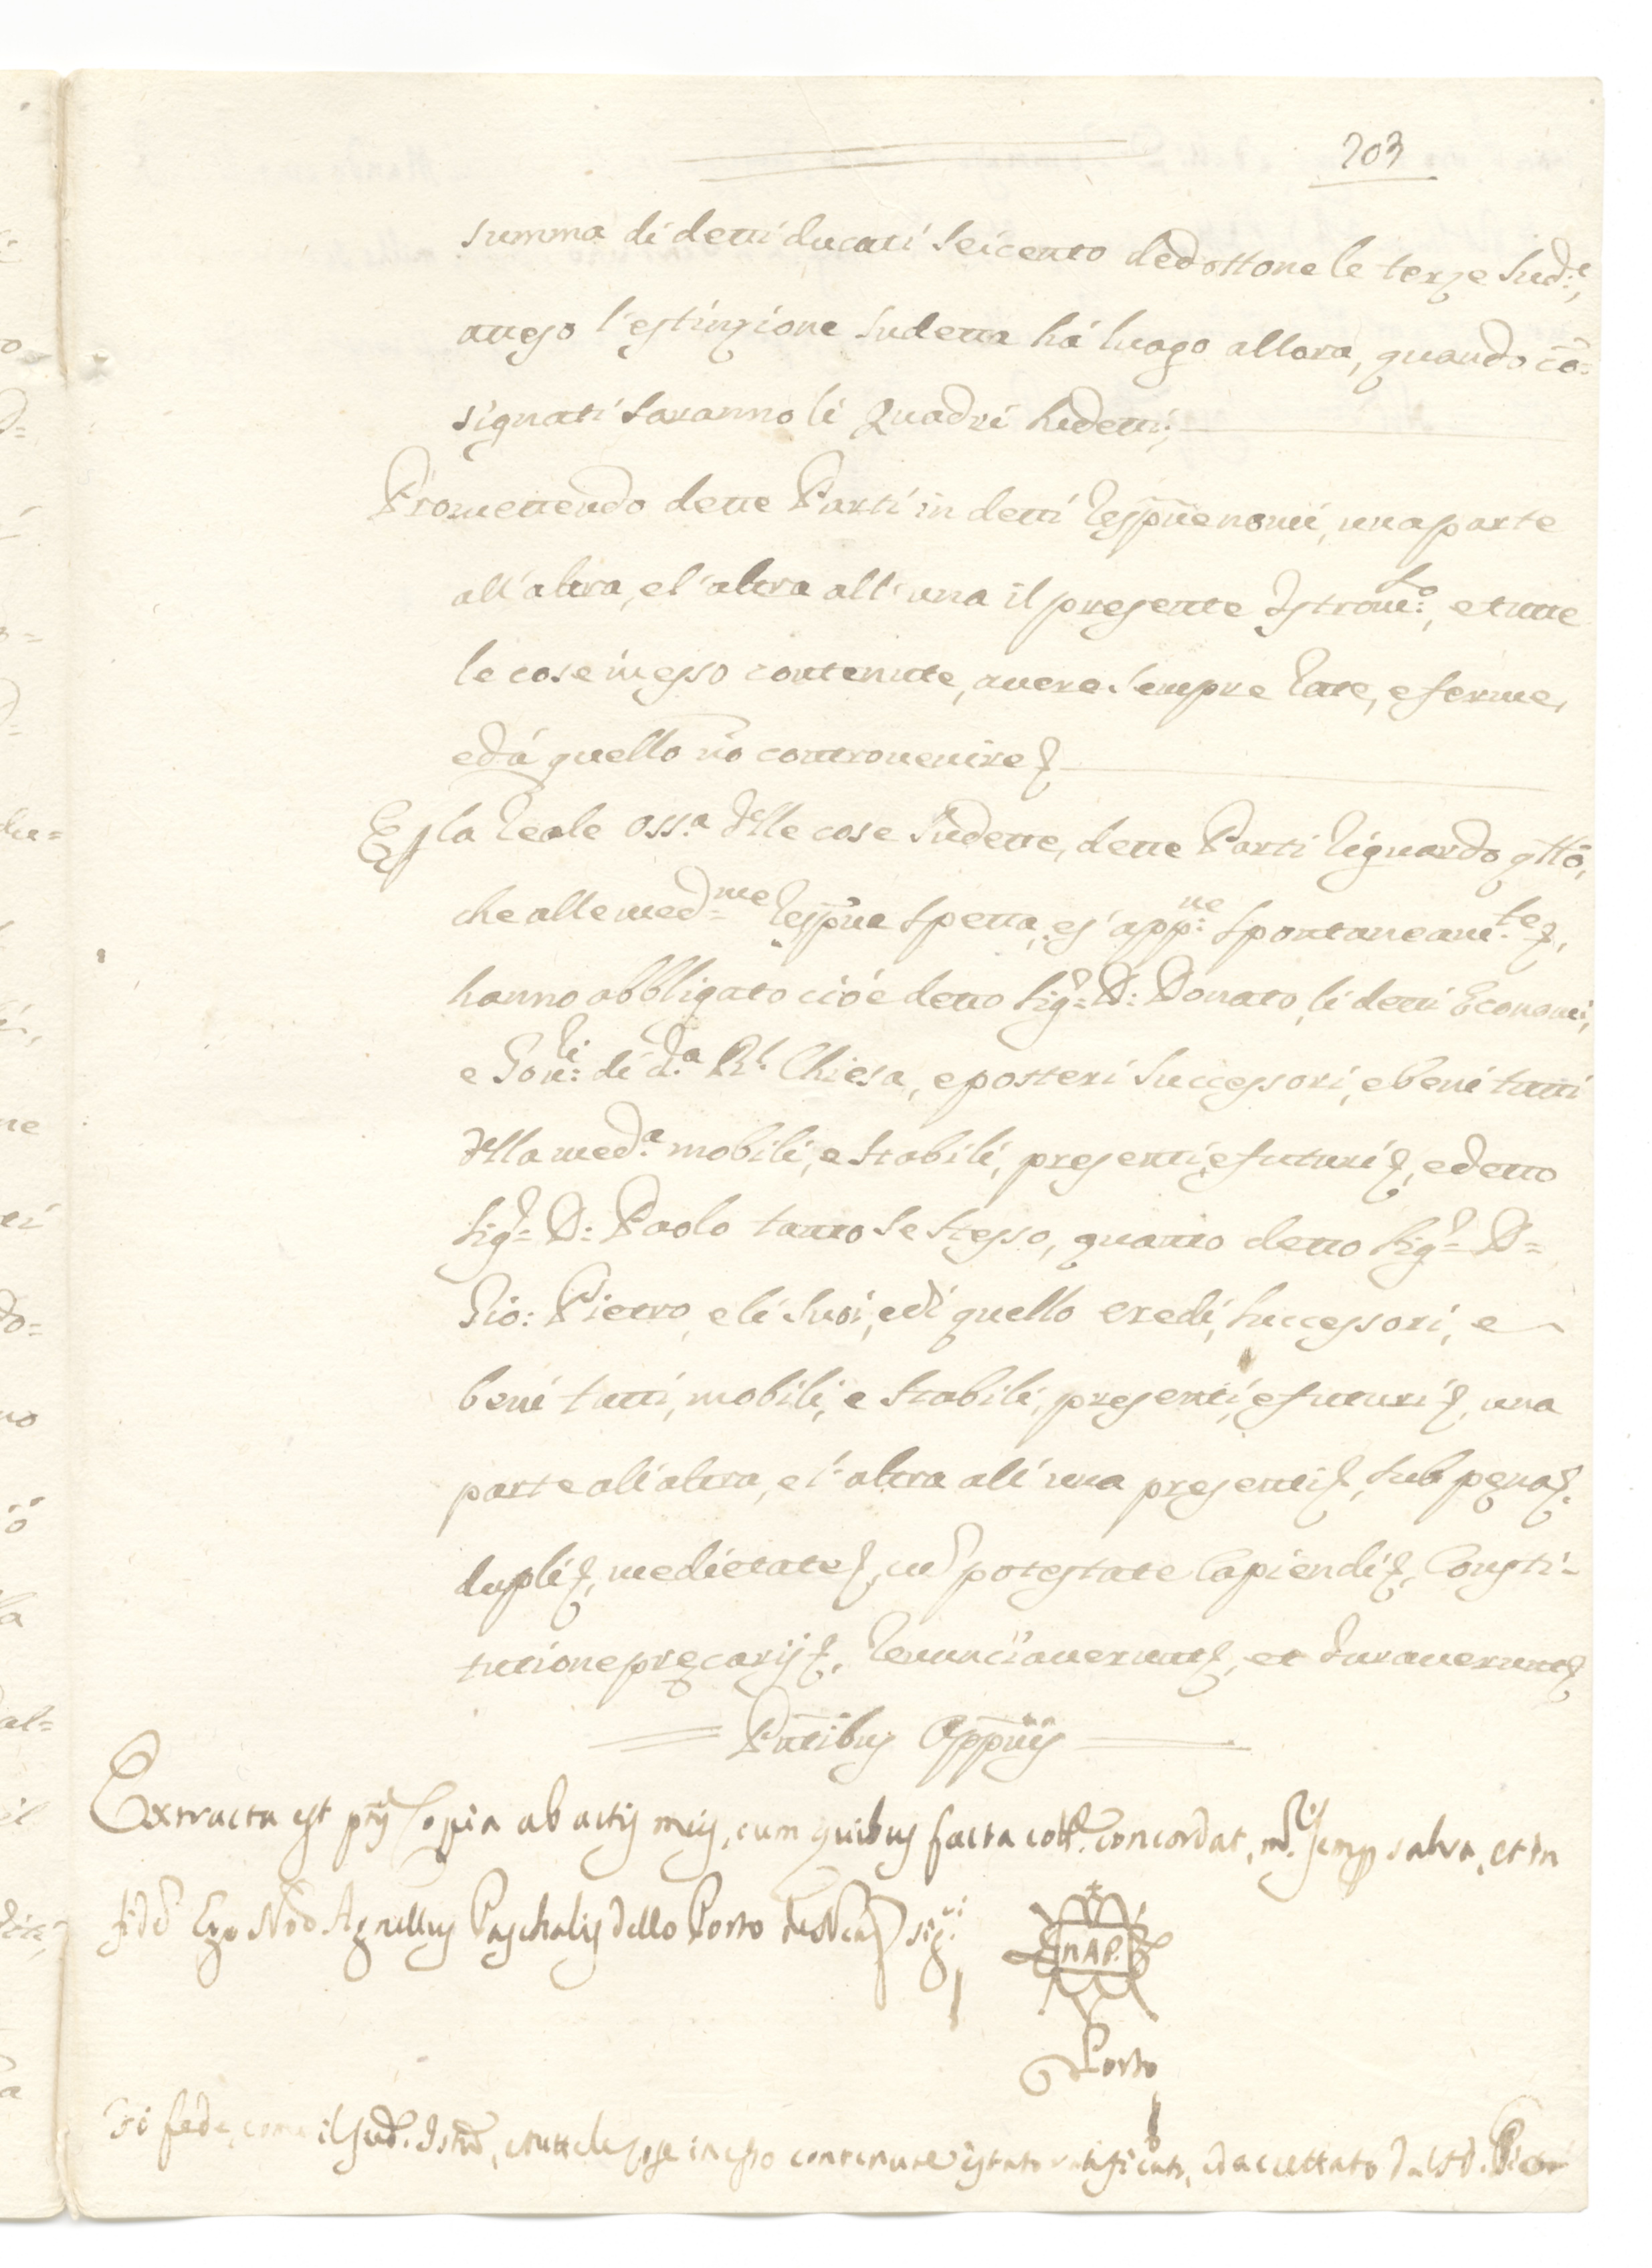 203
summa di detti ducati seicento dedottone le terze sud:e,
atteso l'estinzione sudetta hà luogo allora, quando cō=
signati saranno li Quadri sudetti;
Promettendo dette Parti in detti respūe nomi, una parte
all'altra, e l'altra all'una il presente Istrom:to, e tutte
le cose in esso contenute, avere sempre rate, e ferme,
ed à quello nō controvenire &
E p la reale oss.a delle cose sudette, dette Parti riguardo qtto,
che alle med=me respūe spetta, es' app:ne spontaneam:te &,
hanno obbligato cioè detto sig:r D: Donato, li detti Economi,
e Gov:ri di d.a R.l Chiesa, e posteri successori, e beni tutti
della med:a mobili, e stabili, presenti, e futuri &, e detto
sig:r D: Paolo tanto se stesso, quanto detto sig:r D=
Gio: Pietro, e li suoi, e di quello eredi, successori, e
beni tutti, mobili, e stabili, presenti, e futuri &, una
parte all'altra, e l'altra all'una presenti &, sub pena &
dupli &, medietate &, cū potestate Capiendi &, Consti-
tutione precarij &, renunciaverunt &, et Juraverunt &
Pntibus Oppnis
Extracta est pns Copia ab actis meis, cum quibus facta coll.e concordat, m.ri semp salva, et in
fidē Ego Not.r Agnellus Paschalis dello Porto de Neap sig.vi
NAP.
Porto
Fò fede, come il sud.o Istrō, e tutte le cose in esso contenute è stato ratificato, ed accettato dal S.r D. Pietro